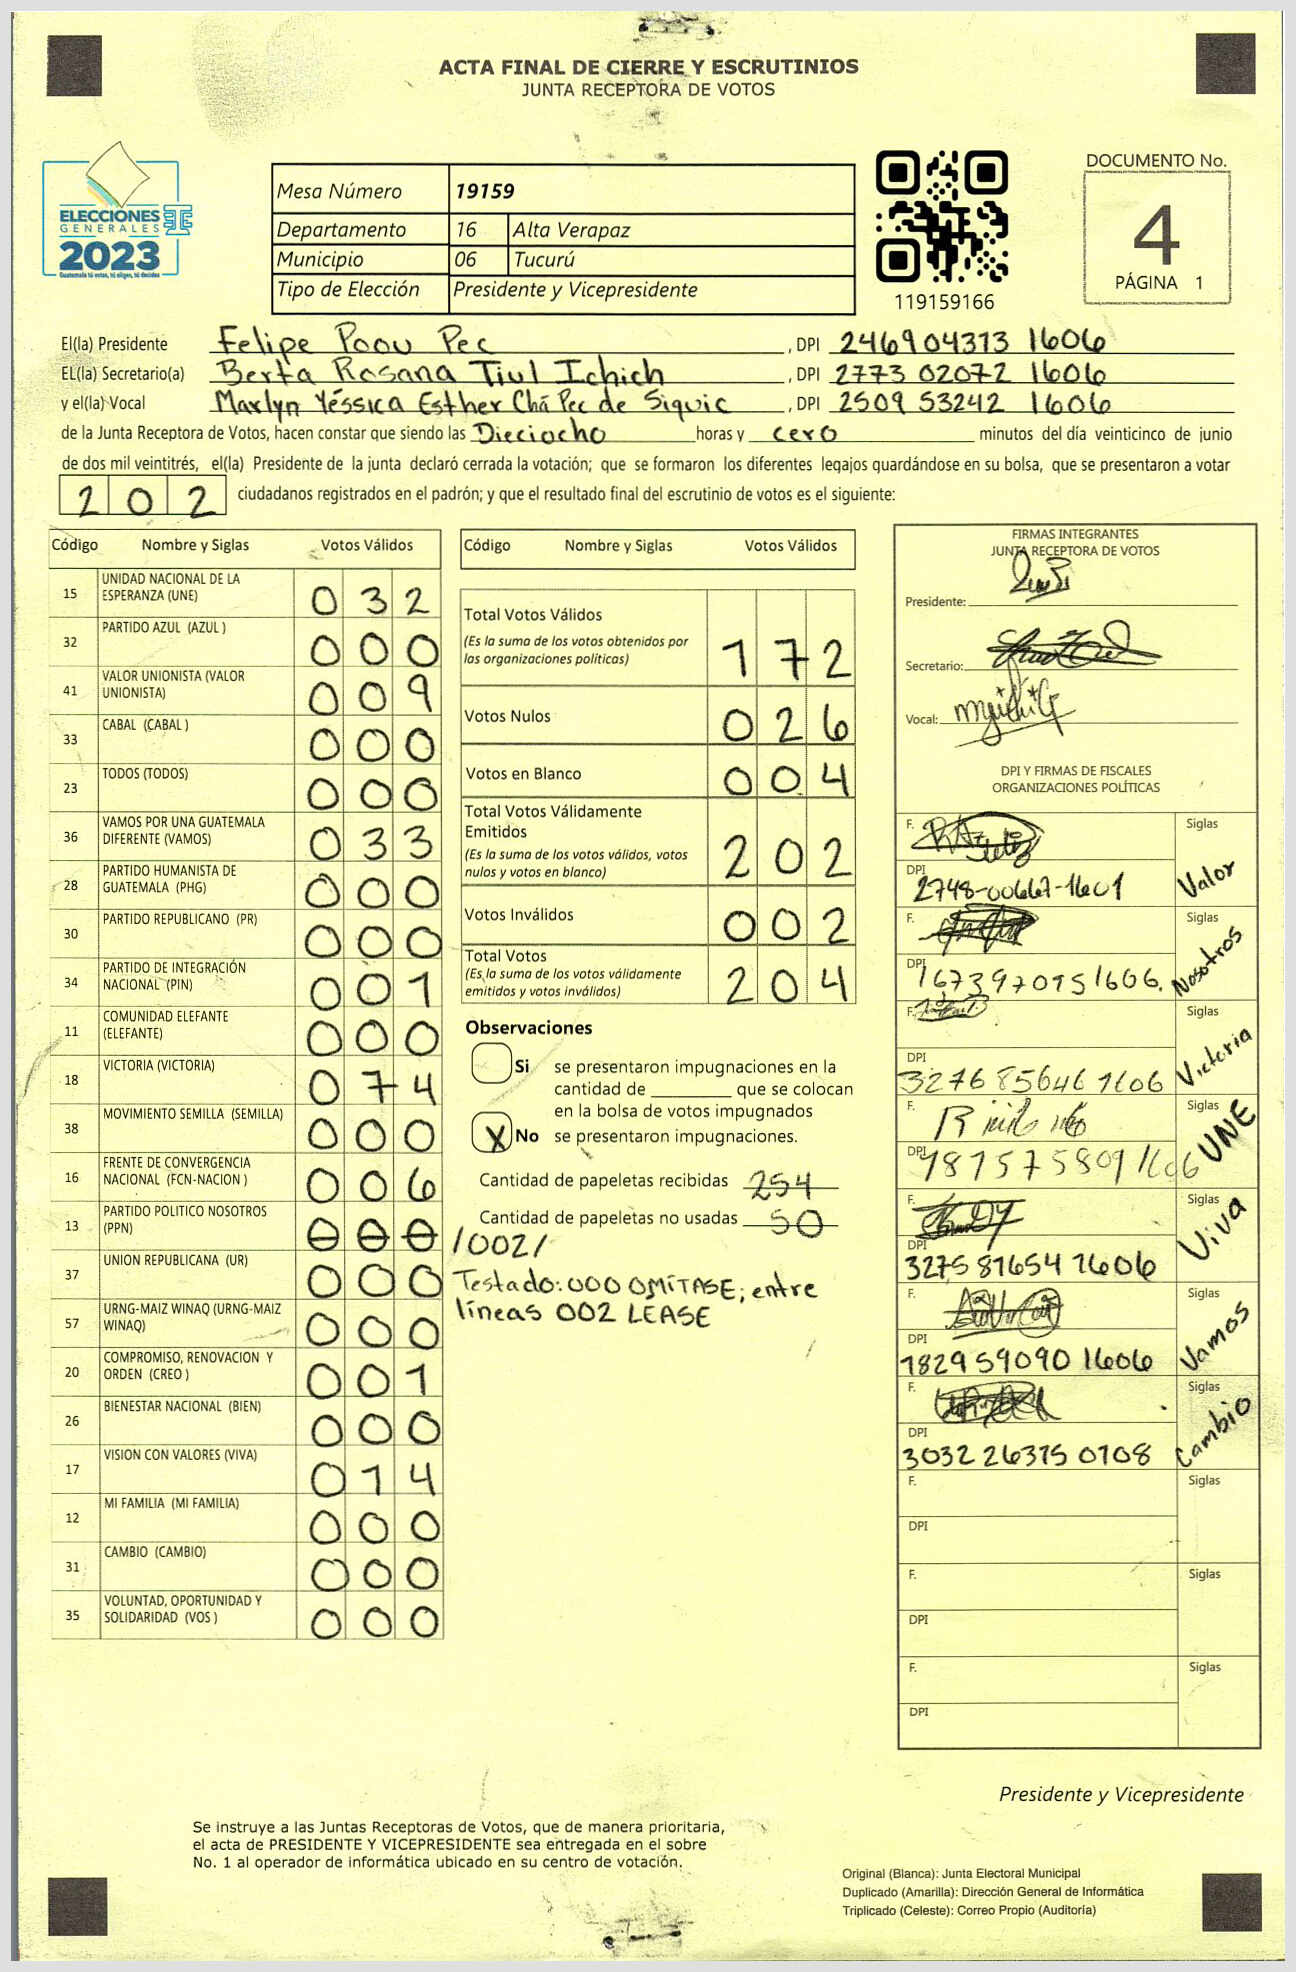 ACTA FINAL DE CIERRE Y ESCRUTINIOS
JUNTA RECEPTORA DE VOTOS
ELECCIONES
GENERALES
2023
Guatemala tú votas, tú eliges, tú decides
Mesa Número 19159
Departamento 16 Alta Verapaz
Municipio 06 Tucurú
Tipo de Elección Presidente y Vicepresidente
119159166
DOCUMENTO No.
4
PÁGINA 1
El(la) Presidente Felipe Poou Pec, DPI 246904373 1606
EL(la) Secretario(a) Berta Rosana Tiul Ichich, DPI 2773 02072 1606
y el(la) Vocal Marlyn Yéssica Esther Chá Pec de Siquic, DPI 2509 53242 1606
de la Junta Receptora de Votos, hacen constar que siendo las Dieciocho horas y cero minutos del día veinticinco de junio
de dos mil veintitrés, el(la) Presidente de la junta declaró cerrada la votación; que se formaron los diferentes legajos guardándose en su bolsa, que se presentaron a votar
202 ciudadanos registrados en el padrón; y que el resultado final del escrutinio de votos es el siguiente:
Código Nombre y Siglas Votos Válidos
15 UNIDAD NACIONAL DE LA
ESPERANZA (UNE) 032
32 PARTIDO AZUL (AZUL ) 000
41 VALOR UNIONISTA (VALOR
UNIONISTA) 009
33 CABAL (CABAL ) 000
23 TODOS (TODOS) 000
36 VAMOS POR UNA GUATEMALA
DIFERENTE (VAMOS) 033
28 PARTIDO HUMANISTA DE
GUATEMALA (PHG) 000
30 PARTIDO REPUBLICANO (PR) 000
34 PARTIDO DE INTEGRACIÓN
NACIONAL (PIN) 001
11 COMUNIDAD ELEFANTE
(ELEFANTE) 000
18 VICTORIA (VICTORIA) 074
38 MOVIMIENTO SEMILLA (SEMILLA) 000
16 FRENTE DE CONVERGENCIA
NACIONAL (FCN-NACION ) 006
13 PARTIDO POLITICO NOSOTROS
(PPN) 000 /002/
37 UNION REPUBLICANA (UR) 000
57 URNG-MAIZ WINAQ (URNG-MAIZ
WINAQ) 000
20 COMPROMISO, RENOVACION Y
ORDEN (CREO ) 001
26 BIENESTAR NACIONAL (BIEN) 000
17 VISION CON VALORES (VIVA) 014
12 MI FAMILIA (MI FAMILIA) 000
31 CAMBIO (CAMBIO) 000
35 VOLUNTAD, OPORTUNIDAD Y
SOLIDARIDAD (VOS ) 000
Código Nombre y Siglas Votos Válidos
Total Votos Válidos
(Es la suma de los votos obtenidos por
las organizaciones políticas) 172
Votos Nulos 026
Votos en Blanco 004
Total Votos Válidamente
Emitidos
(Es la suma de los votos válidos, votos
nulos y votos en blanco) 202
Votos Inválidos 002
Total Votos
(Es la suma de los votos válidamente
emitidos y votos inválidos) 204
Observaciones
Si se presentaron impugnaciones en la
cantidad de que se colocan
en la bolsa de votos impugnados
X No se presentaron impugnaciones.
Cantidad de papeletas recibidas 254
Cantidad de papeletas no usadas 50
Testado: 000 OMÍTASE; entre
líneas 002 LEASE
FIRMAS INTEGRANTES
JUNTA RECEPTORA DE VOTOS
Presidente:
Secretario:
Vocal:
DPI Y FIRMAS DE FISCALES
ORGANIZACIONES POLÍTICAS
F. Siglas
DPI 2748-00667-1601 Valor
F. Siglas
DPI 1673970151606. Nosotros
F. Siglas
DPI 3276856461606 Victoria
F. Siglas
DPI 1875758091606 UNE
F. Siglas
DPI 3275 87654 1606 Viva
F. Siglas
DPI 1829 59090 1606 Vamos
F. Siglas
DPI 3032 26375 0708 Cambio
F. Siglas
DPI
F. Siglas
DPI
F. Siglas
DPI
Presidente y Vicepresidente
Se instruye a las Juntas Receptoras de Votos, que de manera prioritaria,
el acta de PRESIDENTE Y VICEPRESIDENTE sea entregada en el sobre
No. 1 al operador de informática ubicado en su centro de votación.
Original (Blanca): Junta Electoral Municipal
Duplicado (Amarilla): Dirección General de Informática
Triplicado (Celeste): Correo Propio (Auditoría)